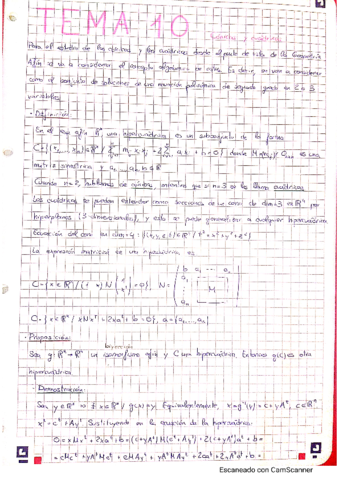 TEMA 10
Para el estudio de las cónicas y las cuádricas desde el punto de vista de la Geometría
Afín se va a considerar el concepto algebraico de ellas. Es decir, se van a considerar
como el conjunto de soluciones de una ecuación polinómica de segundo grado en 2 o 3
variables.
· Definición:
En el esp. afín ℝⁿ, una hipercuádrica es un subconjunto de la forma
Cuando n=2, hablamos de cónicas mientras que si n=3 se les llama cuádricas.
Las cuádricas se pueden entender como secciones de un cono de dim=3 por
hiperplanos (3-dimensionales), y esto se puede generalizar a cualquier hipercuádrica
Ecuación del cono en dim=4:
La expresión matricial de una hipercuádrica es:
C={x∈ℝⁿ/ xMxᵗ+2xaᵗ+b=0}, a=(a₁...aₙ)
· Proposición:
Sea g:ℝⁿ→ℝⁿ un isomorfismo afín y C una hipercuádrica. Entonces g(C) es otra
hipercuádrica.
· Demostración:
Sea y∈ℝⁿ ⇒ ∃ x∈ℝⁿ / g(x)=y. Equivalentemente, x=g⁻¹(y)=c+yAᵗ, c∈ℝⁿ
xᵗ=cᵗ+Ayᵗ. Sustituyendo en la ecuación de la hipercuádrica:
0=xMxᵗ+2xaᵗ+b=(c+yAᵗ)M(cᵗ+Ayᵗ)+2(c+yAᵗ)aᵗ+b=
=cMcᵗ+yAᵗMcᵗ+cMAyᵗ+yAᵗMAyᵗ+2caᵗ+2yAᵗaᵗ+b=
Escaneado con CamScanner